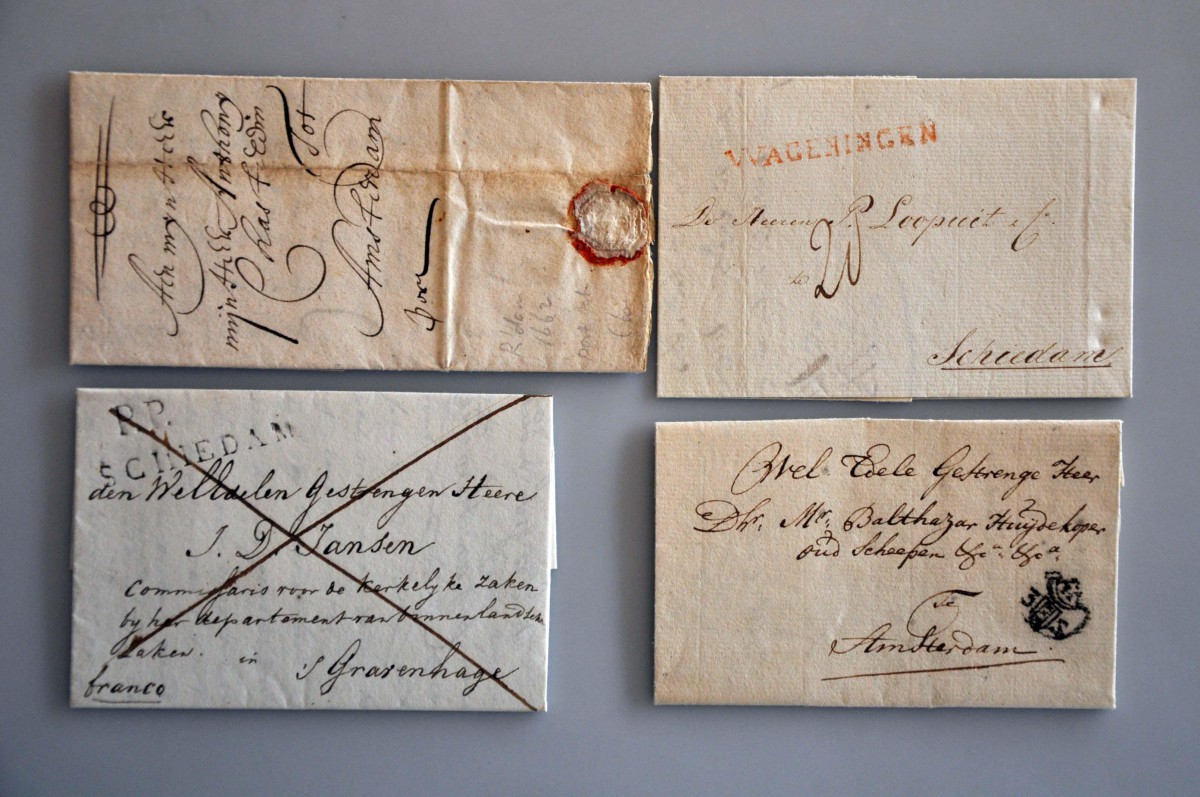 Mijn Heer
Mijn Heer Anthony
Tot
Amsterdam
port
R'dam
1662
WAGENINGEN
De Heeren P. Loopuit & C.
te
Schiedam
P.P.
SCHIEDAM
den WelEdelen Gestrengen Heere
J. D. Jansen
Commissaris voor de kerkelyke zaken
by het departement van binnenlandsche
Zaken.
in
's Gravenhage
franco
Wel Edele Gestrenge Heer
Dhr. Mr. Balthazar Huydekoper
oud Scheepen &c. &c.
Te
Amsterdam